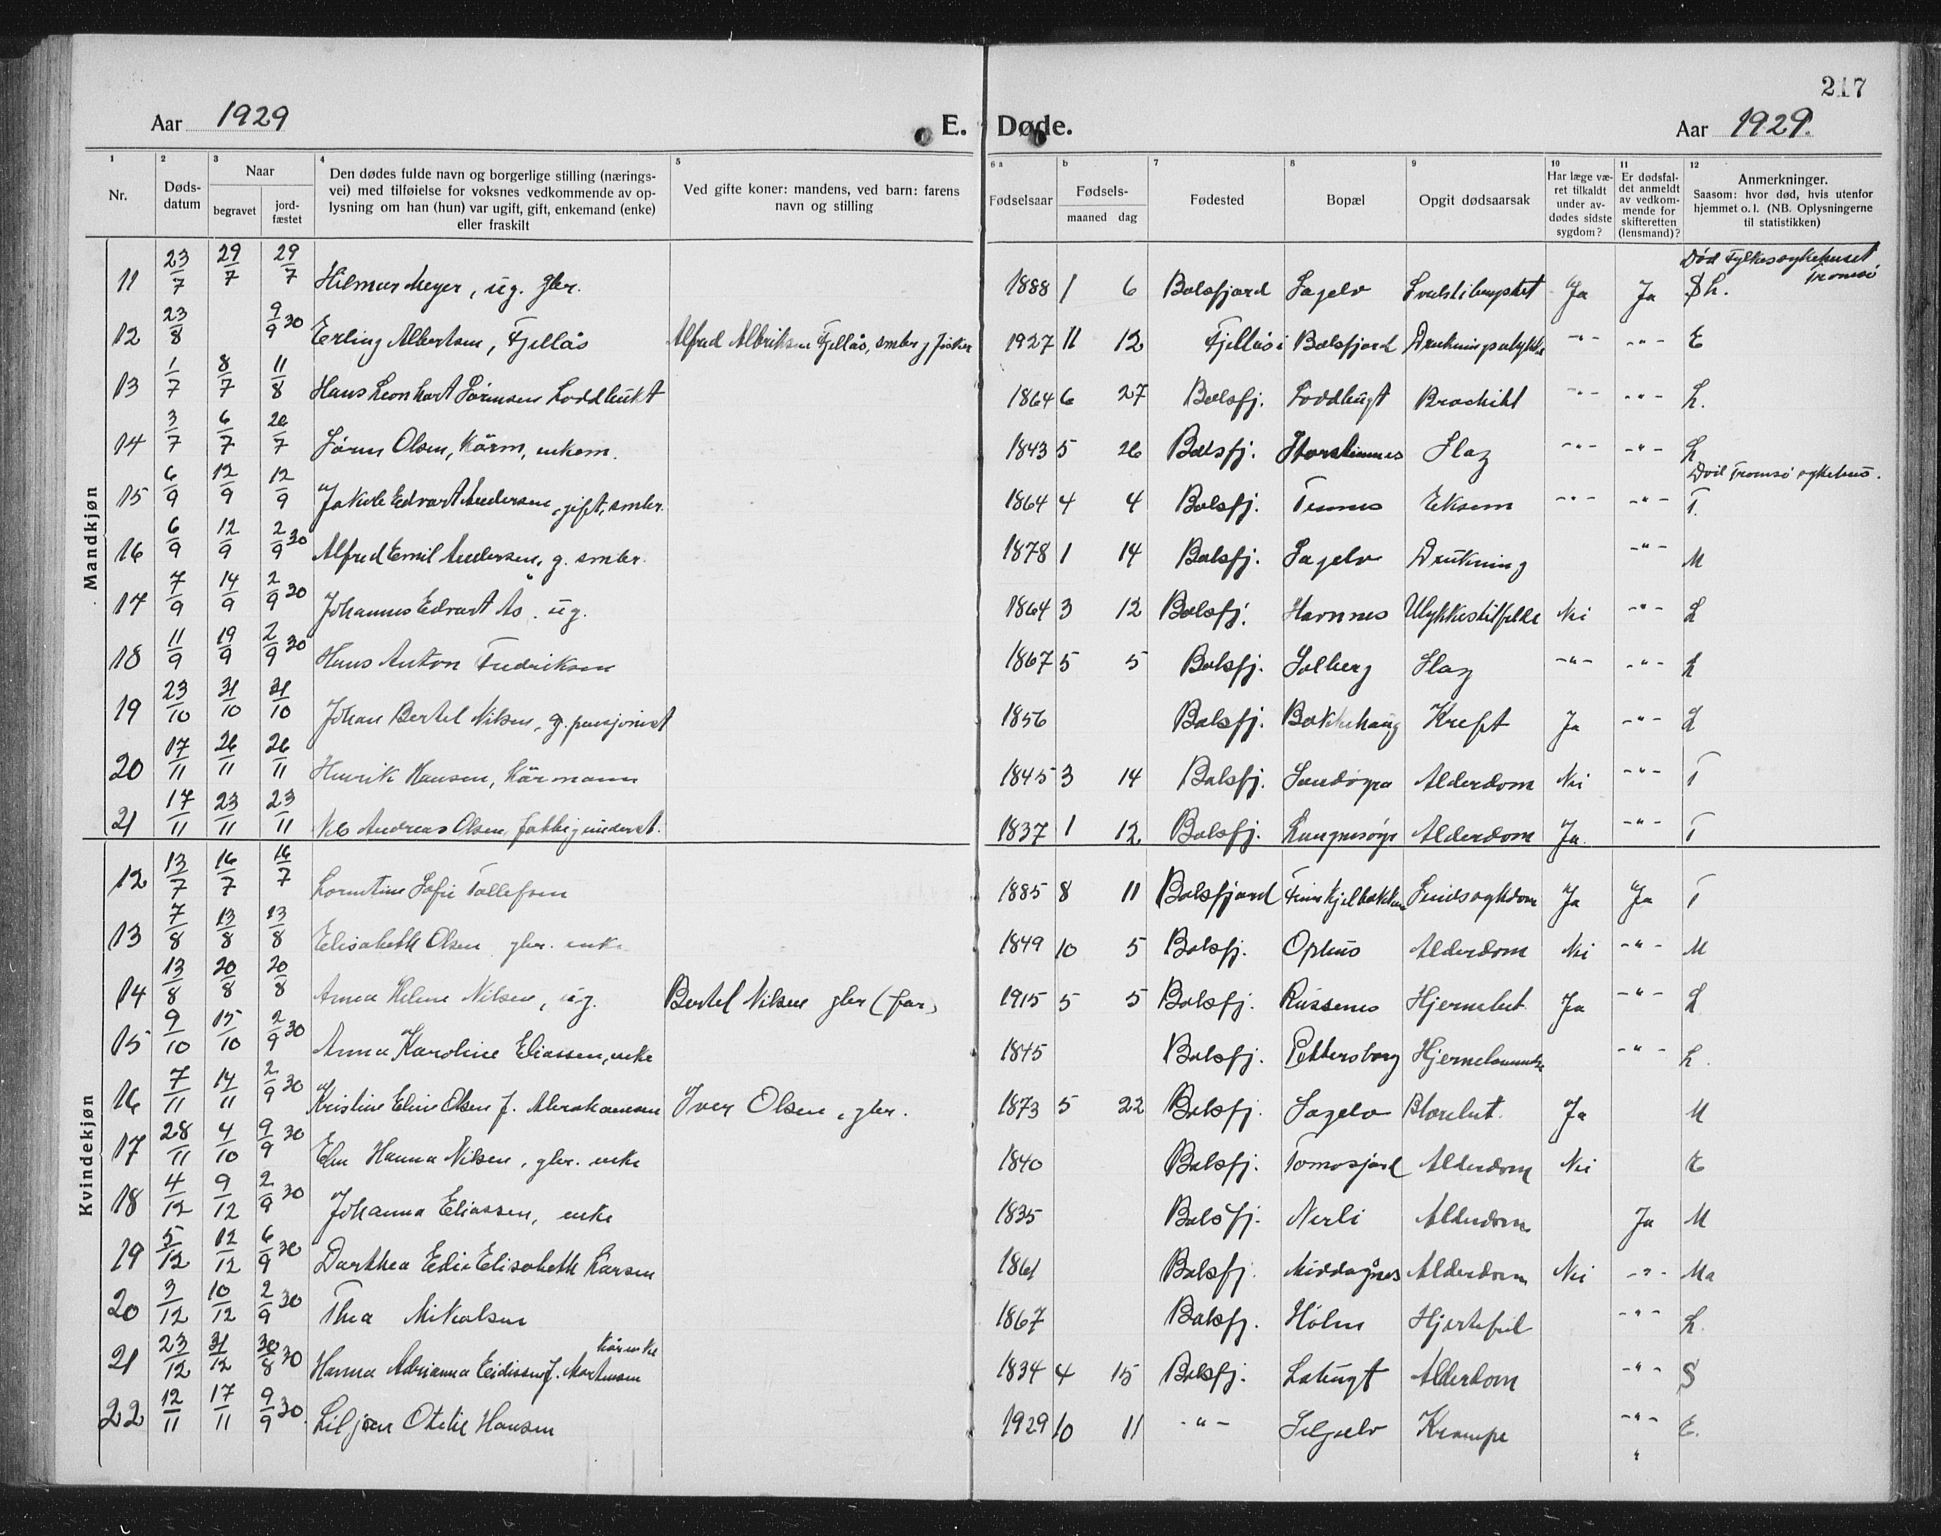 217
Aar 1929 E. Døde. Aar 1929.
1 2 3 4 5 6 a b 7 8 9 10 11 12
Nr.
Døds-
datum
Naar
begravet
jord-
fæstet
Den dødes fulde navn og borgerlige stilling (nærings-
vei) med tilføielse for voksnes vedkommende av op-
lysning om han (hun) var ugift, gift, enkemand (enke)
eller fraskilt
Ved gifte koner: mandens, ved barn: farens
navn og stilling
Fødselsaar
Fødsels-
maaned dag
Fødested
Bopæl
Opgit dødsaarsak
Har læge væ-
ret tilkaldt
under av-
dødes sidste
sygdom?
Er dødsfal-
det anmeldt
av vedkom-
mende for
skifteretten
(lensmand)?
Anmerkninger.
Saasom: hvor død, hvis utenfor
hjemmet o. l. (NB. Oplysningerne
til statistikken)
Mandkjøn
Død Fylkessykehuset
Tromsø
11 23/7 29/7 29/7 Hilmar Meyer, ug. gbr. 1888 1 6 Balsfjord Sagelv Ja Ja
12 23/8 9/9 30 Erling Albertsen, Fjellås Alfred Albriksen Fjellås, smbr. fisker 1927 11 12 Fjellås i Balsfjord Drukningsulykke -"- -"- E
13 1/7 8/7 11/8 Hans Leonhart Sørensen Loddbukt 1864 6 27 Balsfj. Loddbugt -"- -"- L.
14 3/7 6/7 26/7 Søren Olsen, kårm, enkem. 1843 5 26 Balsfj. Storsteinnes Slag -"- -"- L
Død Tromsø sykehus.
15 6/9 12/9 12/9 Jakob Edvart Andersen, gift, smbr. 1864 4 4 Balsfj. Tennes Eksem -"- -"- T.
16 6/9 12/9 2/9 30 Alfred Emil Andersen, g. smbr. 1878 1 14 Balsfj. Sagelv Drukning -"- M
17 7/9 14/9 2/9 30 Johannes Edvart Ås. ug. 1864 3 12 Balsfj. Havnnes Ulykkestilfelde Nei -"- L
18 11/9 19/9 2/9 30 Hans Anton Fredriksen 1867 5 5 Balsfj. Solberg Slag -"- -"- L
19 23/10 31/10 31/10 Johan Bertel Nilsen, g. pensjonist 1856 Balsfj. Bakkehaug Kreft Ja -"- L
20 17/11 26/11 26/11 Henrik Hansen, kårmann 1845 3 14 Balsfj. Sandøyra Alderdom Nei -"- T
21 17/11 23/11 23/11 Nils Andreas Olsen, fattigunderst. 1837 1 12 Balsfj. Alderdom Ja. -"- T
Kvindekjøn
12 13/7 16/7 16/7 Lorentine Sofie Tollefsen 1885 8 11 Balsfjord Sindssykdom Ja Ja T
13 7/8 13/8 13/8 Elisabeth Olsen gbr. enke 1849 10 5 Balsfj. Ophus Alderdom Nei -"- M
14 13/8 20/8 20/8 Anna Helene Nilsen, ug. Bertel Nilsen gbr (far) 1915 5 5 Balsfj. Russenes Hjernebet. Ja -"- L
15 9/10 15/10 2/9 30 Anna Karoline Eliassen, enke 1845 Balsfj. Pettersborg -"- L.
16 7/11 14/11 2/9 30 Kristine Eline Olsen f. Abrahamsen Iver Olsen, gbr. 1873 5 22 Balsfj. Sagelv Blærebet. Ja M
17 28/11 4/10 9/9 30 Elen Hanna Nilsen, gbr. enke 1840 Balsfj. Tomasjord Alderdom Nei E
18 4/12 9/12 2/9 30 Johanna Eliassen, enke 1835 Balsfj. Nerli Alderdom Ja M
19 5/12 12/12 6/9 30 Darthea Edie Elisabeth Larsen 1861 Balsfj. Middagsnes Alderdom Nei -"- Ma
20 3/12 10/12 2/9 30 Thea Mikalsen 1867 Balsfj. Holm Hjertefeil -"- L.
kårenke
21 23/12 31/12 30/8 30 Hanna Adrianna Eidissen f. Mortensen 1834 4 15 Balsfj. Alderdom -"- S
22 12/11 17/11 9/9 30. Liljan Otelie Hansen 1929 10 11 -"- Selgelv Krampe -"- E.
"